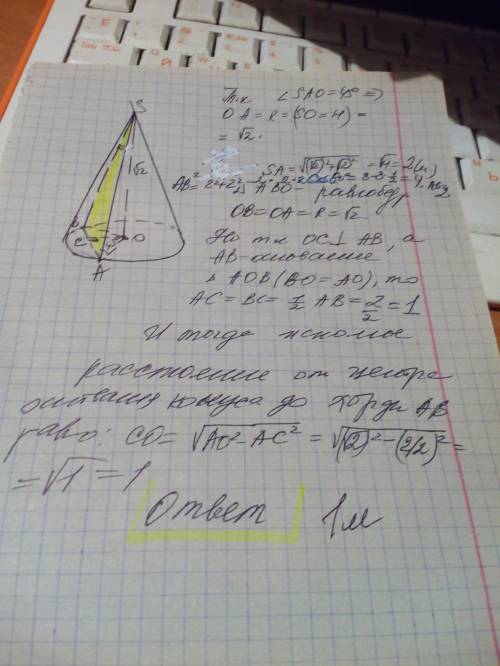 S
√2
B
C
O
A
45°
Т.к ∠SAO = 45° ⇒
OA = R = (SO = H) =
= √2.
SA = √(√2)²+√2² = √4 = 2(м)
AB² = 2²+2²- 2·2·2 = 8-8·½ = 4. AB=2
ABO - равнобедр
OB = OA = R = √2.
Но т.к OC⊥AB, а
AB-основание
Δ AOB (BO = AO), то
AC = BC = ½ AB = 2/2 = 1
И тогда искомое
расстояние от центра
основания конуса до хорды AB
равно: CO = √AO² - AC² = √(√2)² - (2/2)² =
= √1 = 1
Ответ 1м